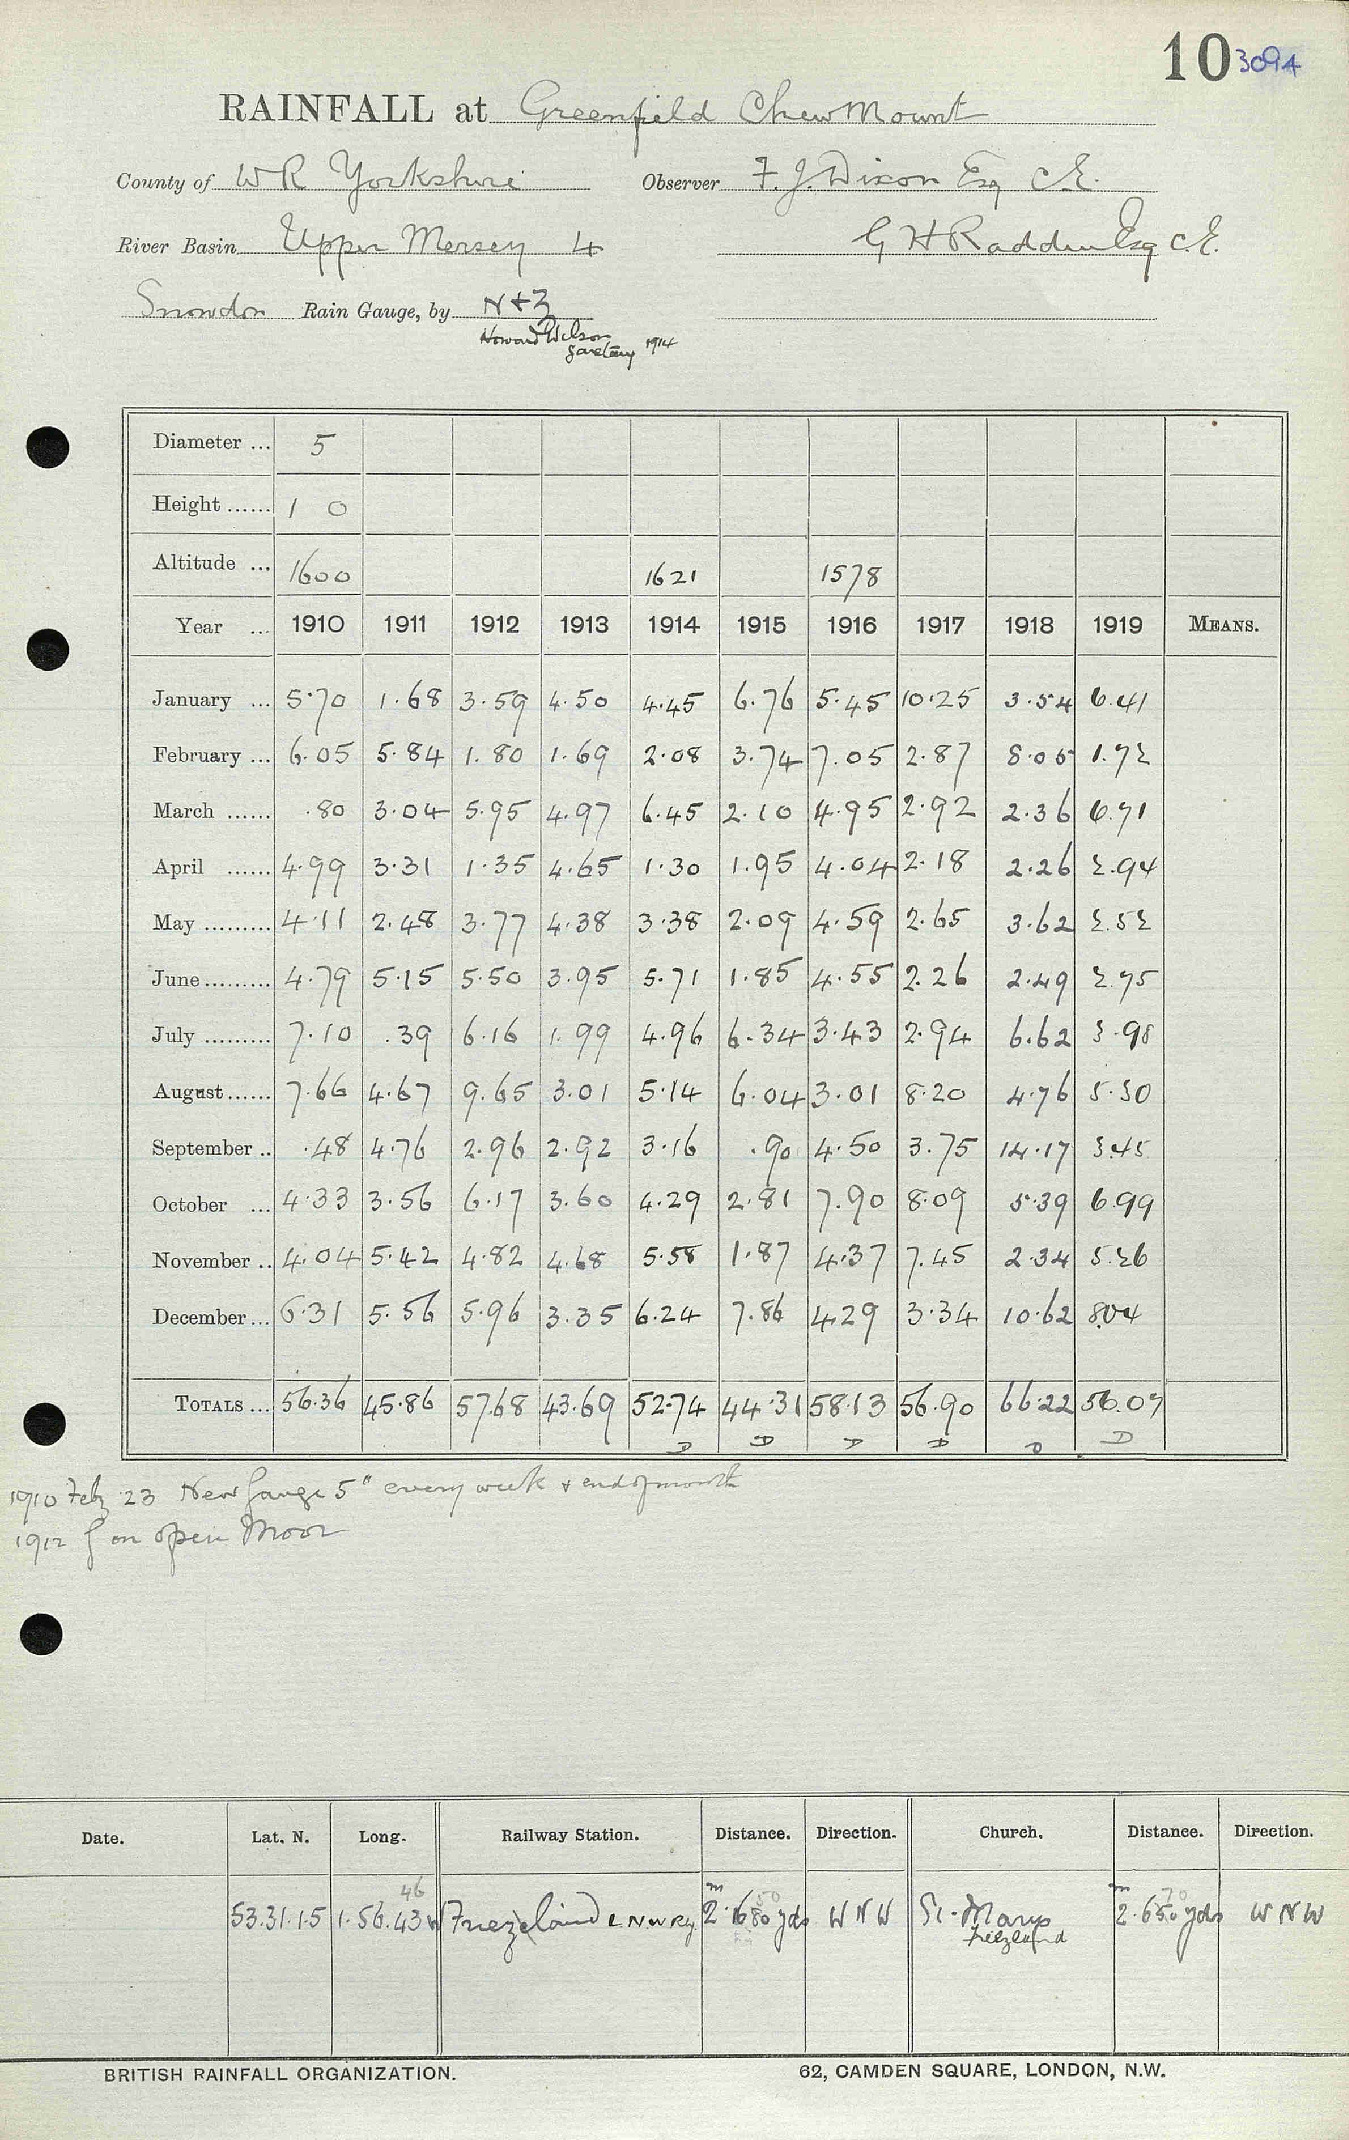 10 3094
RAINFALL at Greenfield Chew Mount
County of W R Yorkshire Observer F. J. Dixon Esq C.E.
River Basin Upper Mersey 4 G H Radden Esq C.E.
Snowdon Rain Gauge, by N + Z
Howard Wilson
Secretary 1914
Diameter ... 5
Height ...... 1 0
Altitude ... 1600 1621 1578
Year ... 1910 1911 1912 1913 1914 1915 1916 1917 1918 1919 MEANS.
January ... 5.70 1.68 3.59 4.50 4.45 6.76 5.45 10.25 3.54 6.41
February ... 6.05 5.84 1.80 1.69 2.08 3.74 7.05 2.87 8.05 1.72
March ...... .80 3.04 5.95 4.97 6.45 2.10 4.95 2.92 2.36 6.71
April ...... 4.99 3.31 1.35 4.65 1.30 1.95 4.04 2.18 2.26 2.94
May ......... 4.11 2.48 3.77 4.38 3.38 2.09 4.59 2.65 3.62 2.52
June ......... 4.79 5.15 5.50 3.95 5.71 1.85 4.55 2.26 2.49 2.75
July ......... 7.10 .39 6.16 1.99 4.96 6.34 3.43 2.94 6.62 3.98
August ...... 7.66 4.67 9.65 3.01 5.14 6.04 3.01 8.20 4.76 5.30
September .. .48 4.76 2.96 2.92 3.16 .90 4.50 3.75 14.17 3.45
October ... 4.33 3.56 6.17 3.60 4.29 2.81 7.90 8.09 5.39 6.99
November .. 4.04 5.42 4.82 4.68 5.58 1.87 4.37 7.45 2.34 5.26
December ... 6.31 5.56 5.96 3.35 6.24 7.86 4.29 3.34 10.62 8.04
TOTALS ... 56.36 45.86 57.68 43.69 52.74 44.31 58.13 56.90 66.22 56.07
D D D D D D
1910 Feb 23 New Gauge 5" every week & end of month
1912 G on open Moor
Date. Lat. N. Long. Railway Station. Distance. Direction. Church. Distance. Direction.
46 m 50 m 70
53.31.15 1.56.43 W Friezeland L.N.W.Ry 2. 680 yds W N W St. Marys 2. 650 yds W N W
Friezland
BRITISH RAINFALL ORGANIZATION. 62, CAMDEN SQUARE, LONDON, N.W.